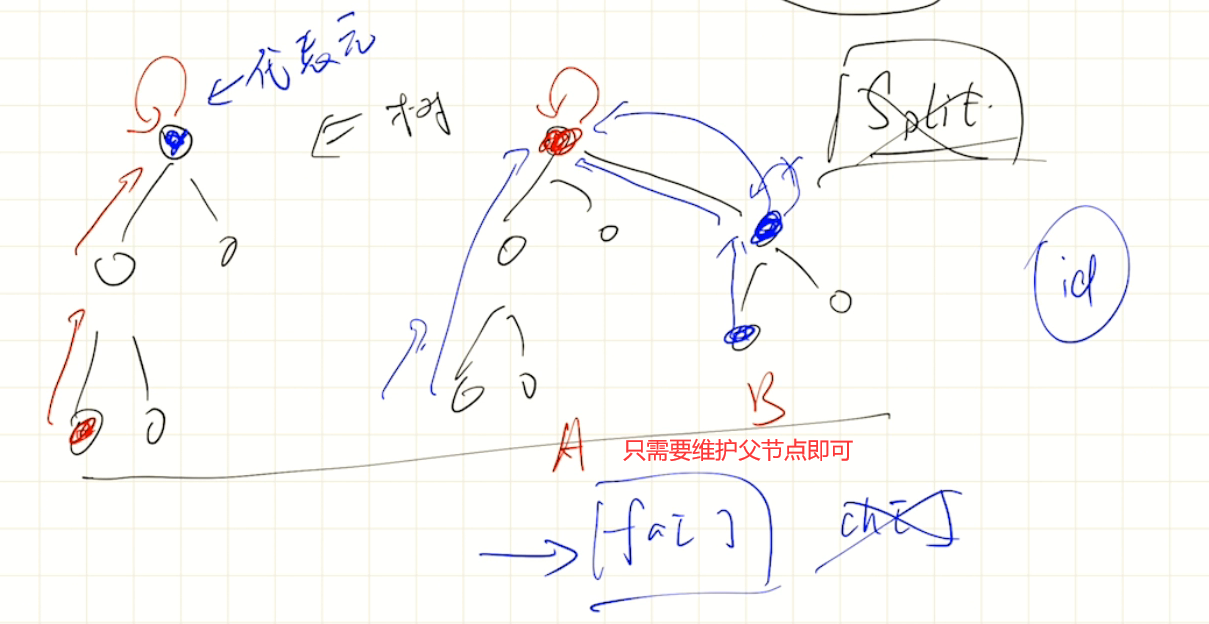 代表元
树
Split.
id
A
B
只需要维护父节点即可
fa[ ]
ch[ ]